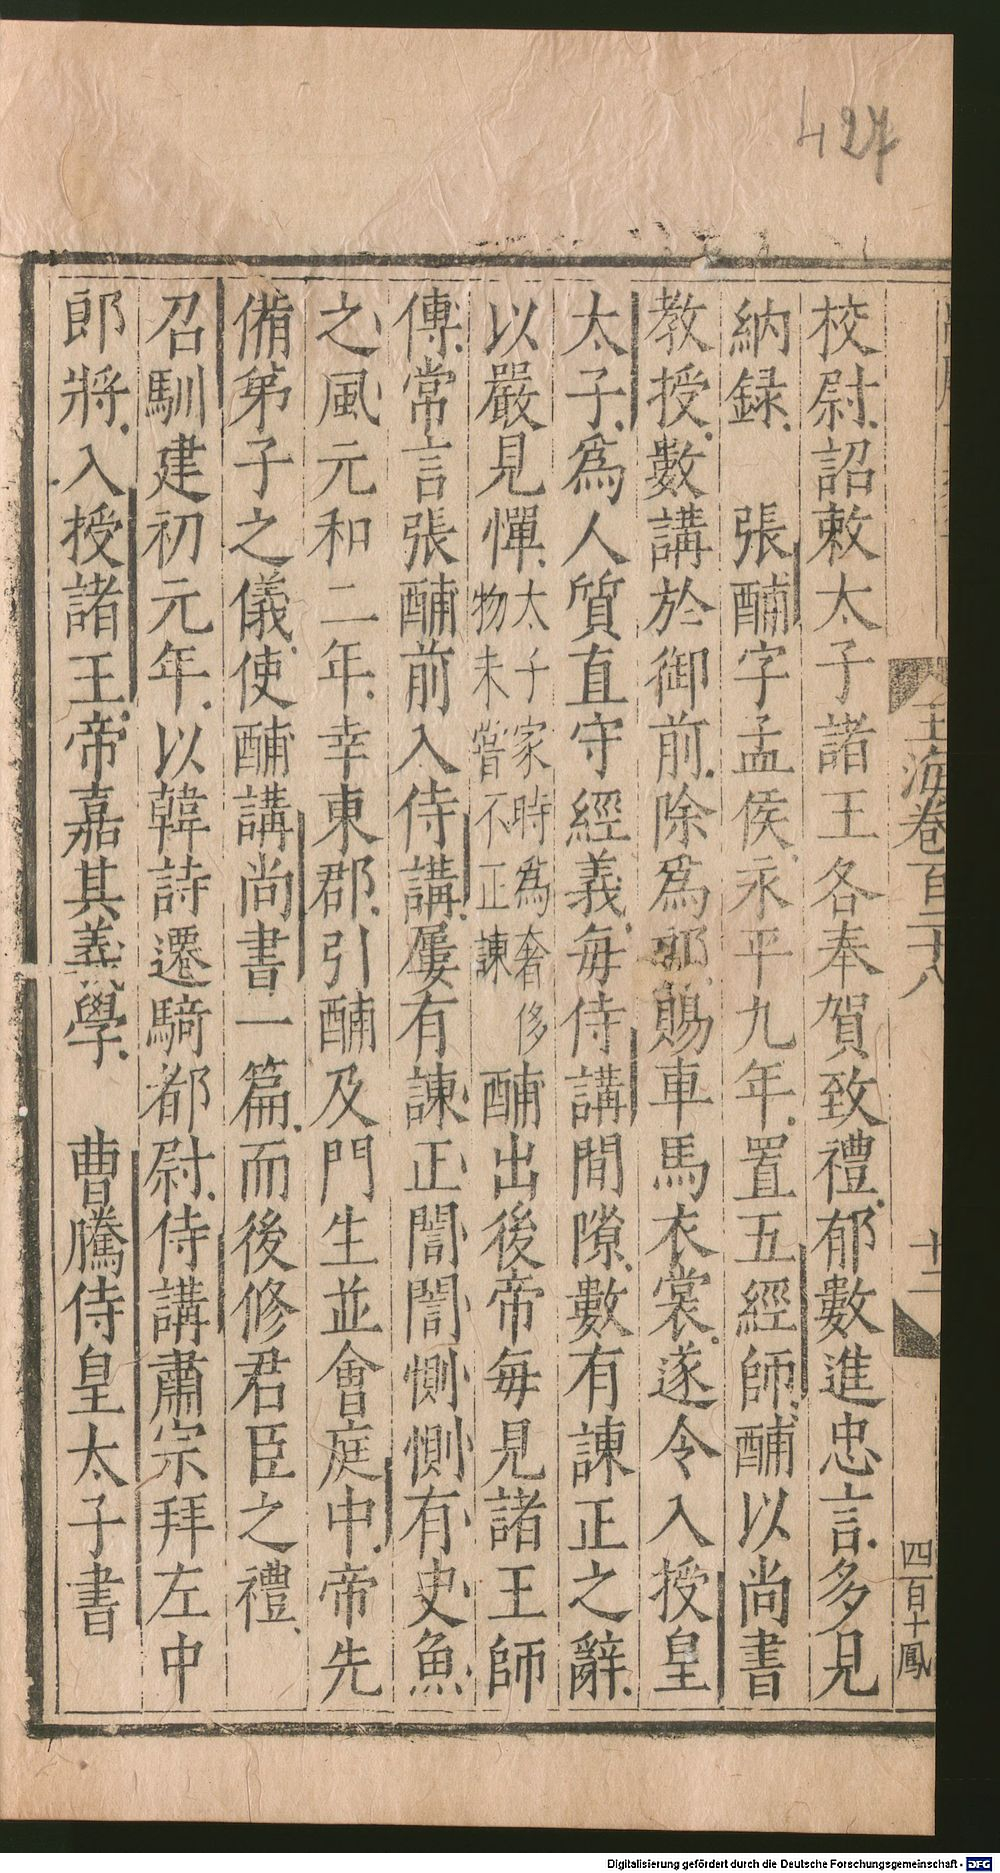 427
玉海卷百二十八
十二
四百十鳳
校尉詔敕太子諸王各奉賀致禮郁數進忠言多見
納録　張酺字孟侯永平九年置五經師酺以尚書
教授數講於御前除爲郎賜車馬衣裳遂令入授皇
太子爲人質直守經義每侍講閒隙數有諫正之辭
以嚴見憚太子家時爲奢侈物未嘗不正諫酺出後帝每見諸王師
傅常言張酺前入侍講屢有諫正誾誾惻惻有史魚
之風元和二年幸東郡引酺及門生並會庭中帝先
俻弟子之儀使酺講尚書一篇而後修君臣之禮
召馴建初元年以韓詩遷騎都尉侍講肅宗拜左中
郎將入授諸王帝嘉其義學　曹騰侍皇太子書
Digitalisierung gefördert durch die Deutsche Forschungsgemeinschaft - DFG